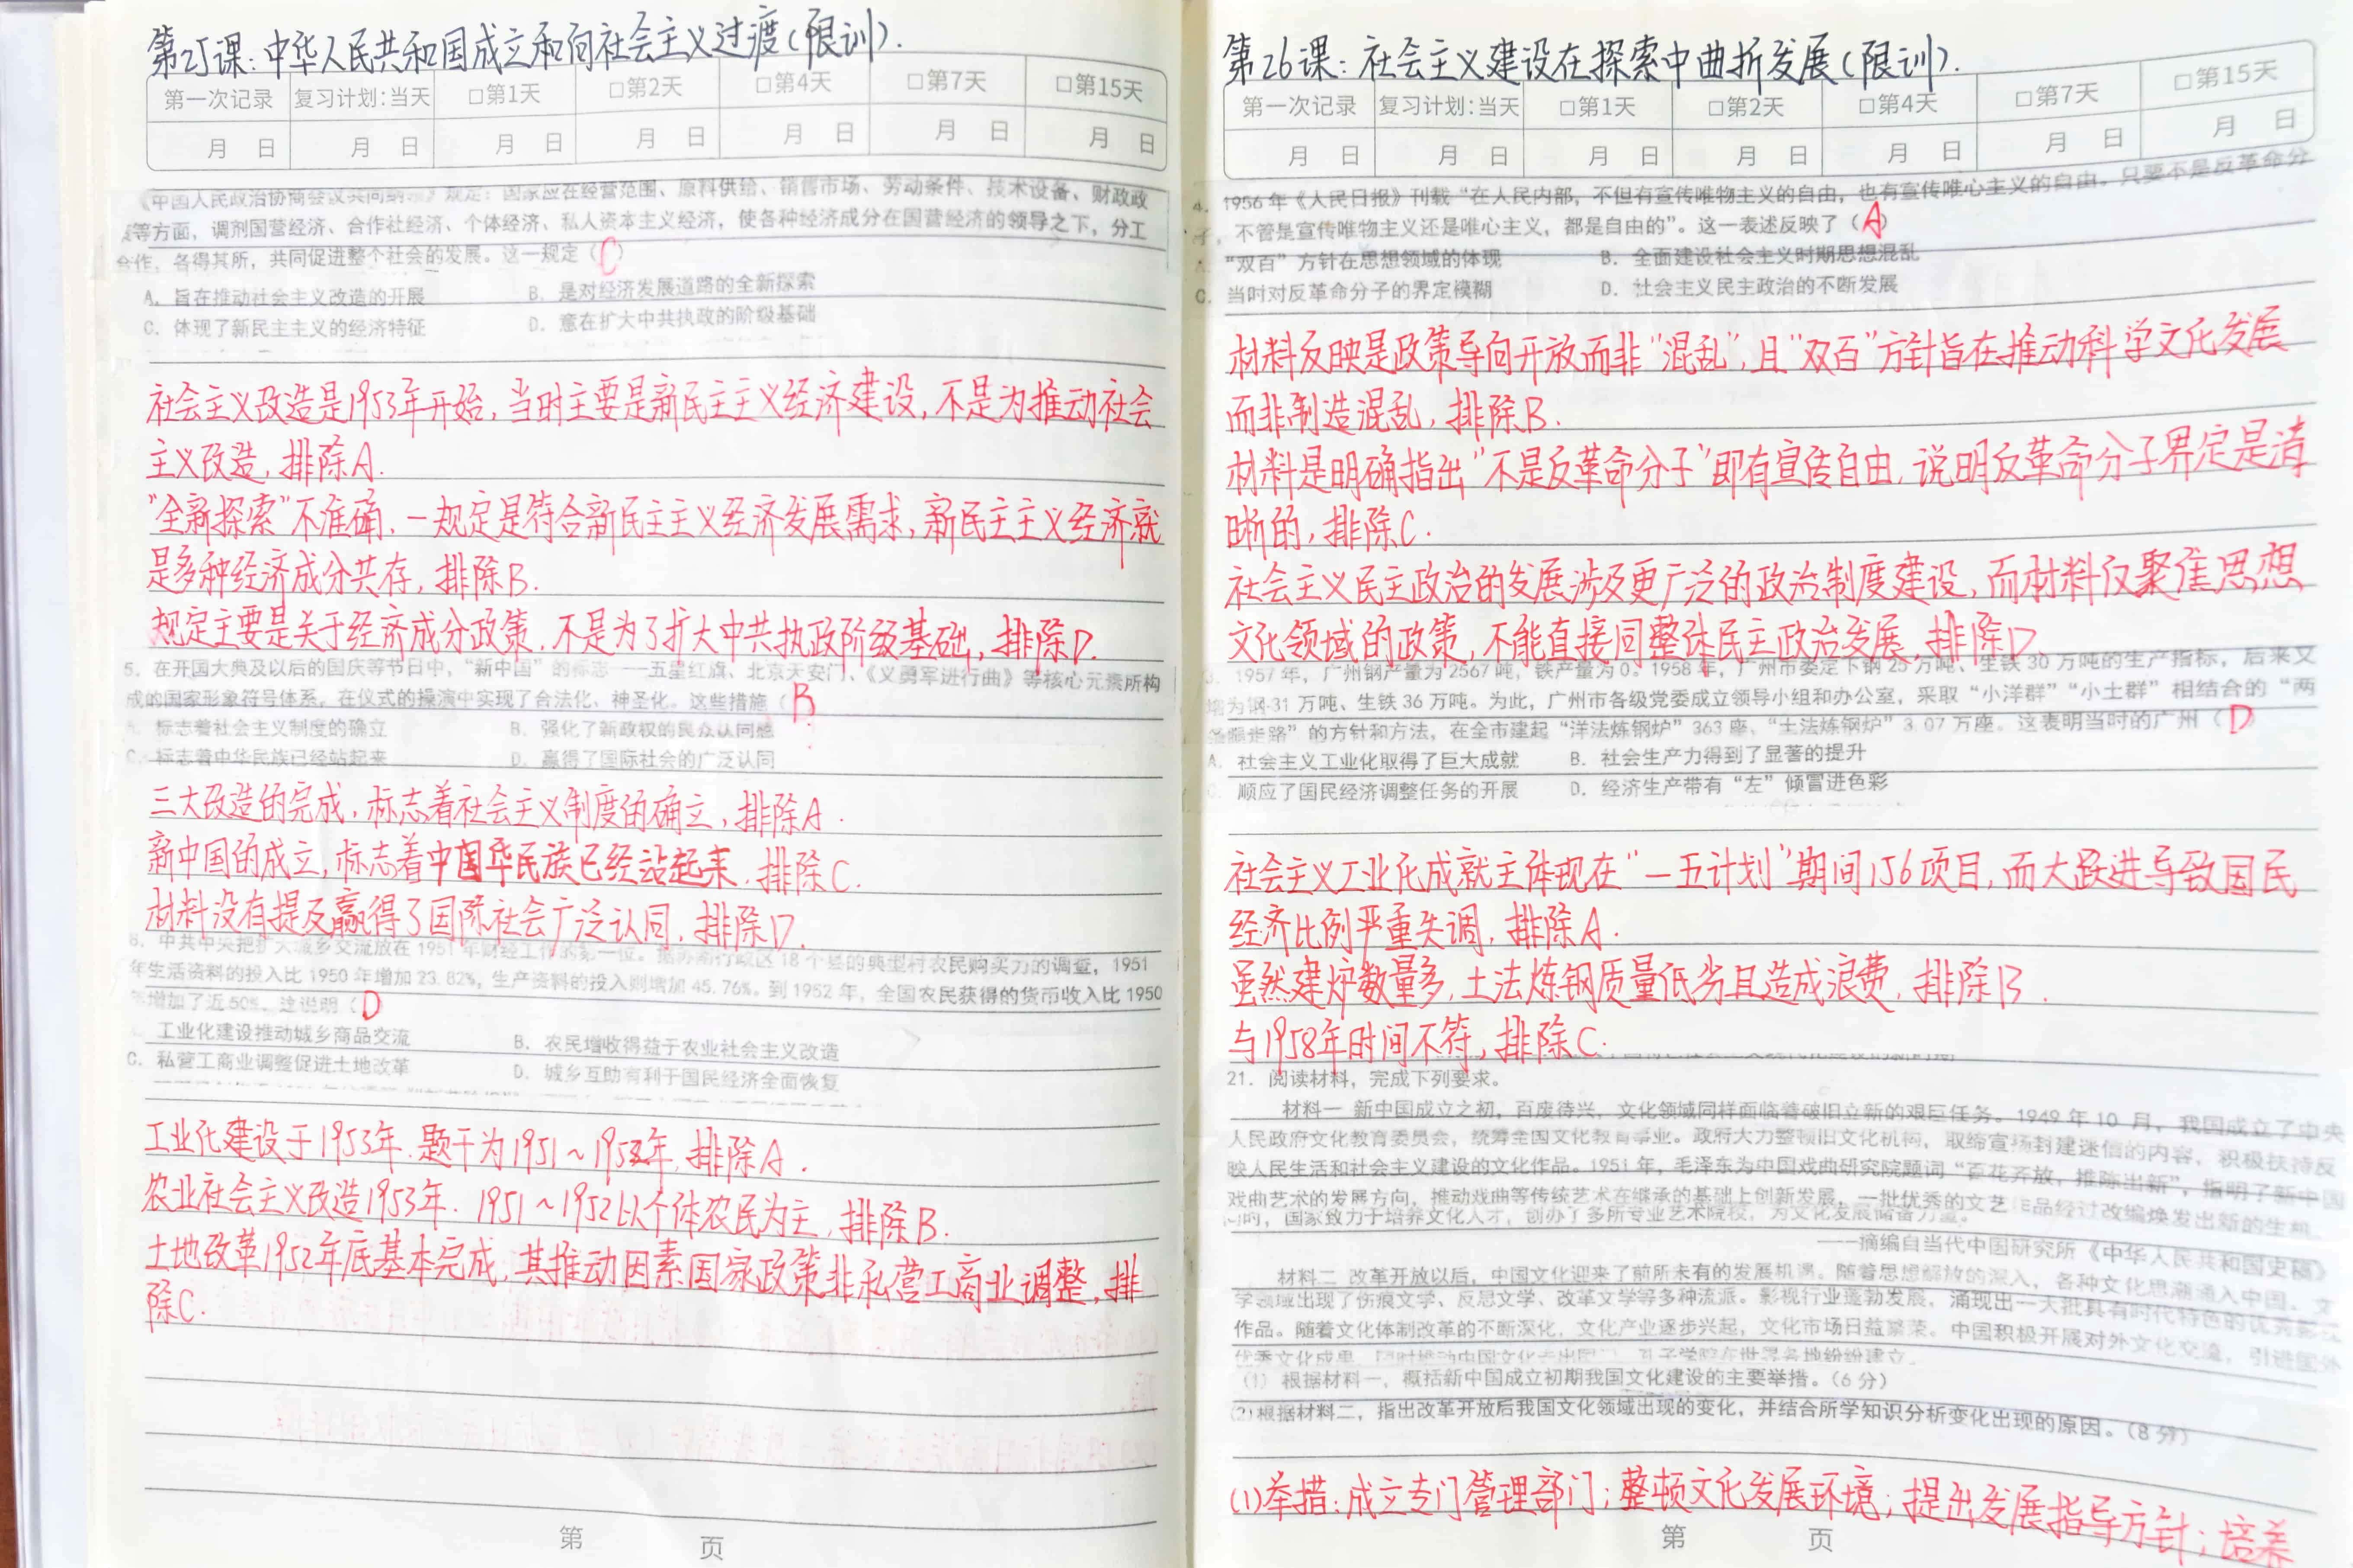 第25课:中华人民共和国成立和向社会主义过渡(限训).
第一次记录 复习计划:当天 □第1天 □第2天 □第4天 □第7天 □第15天
月 日 月 日 月 日 月 日 月 日 月 日 月 日
《中国人民政治协商会议共同纲领》规定:国家应在经营范围、原料供给、销售市场、劳动条件、技术设备、财政政
等方面,调剂国营经济、合作社经济、个体经济、私人资本主义经济,使各种经济成分在国营经济的领导之下,分工
合作,各得其所,共同促进整个社会的发展。这一规定(C)
A.旨在推动社会主义改造的开展 B.是对经济发展道路的全新探索
C.体现了新民主主义的经济特征 D.意在扩大中共执政的阶级基础
社会主义改造是1953年开始,当时主要是新民主主义经济建设,不是为推动社会
主义改造,排除A.
"全新探索"不准确,一规定是符合新民主主义经济发展需求,新民主主义经济就
是多种经济成分共存,排除B.
规定主要是关于经济成分政策,不是为了扩大中共执政阶级基础,排除D.
5.在开国大典及以后的国庆等节日中,"新中国"的标志——五星红旗、北京天安门、《义勇军进行曲》等核心元素所构
成的国家形象符号体系,在仪式的操演中实现了合法化、神圣化。这些措施(B
标志着社会主义制度的确立 B.强化了新政权的民众认同感
C.标志着中华民族已经站起来 D.赢得了国际社会的广泛认同
三大改造的完成,标志着社会主义制度的确立,排除A.
新中国的成立,标志着中国华民族已经站起来,排除C.
材料没有提及赢得了国际社会广泛认同,排除D.
8.中共中央把扩大城乡交流放在1951年财经工作的第一位。 18个县的典型村农民购买力的调查,1951
年生活资料的投入比1950年增加23.82%,生产资料的投入则增加45.76%。到1952年,全国农民获得的货币收入比1950
年增加了近50%。这说明(D
工业化建设推动城乡商品交流 B.农民增收得益于农业社会主义改造
C.私营工商业调整促进土地改革 D.城乡互助有利于国民经济全面恢复
工业化建设于1953年,题干为1951~1952年,排除A.
农业社会主义改造1953年.1951~1952以个体农民为主,排除B.
土地改革1952年底基本完成,其推动因素国家政策非私营工商业调整,排
除C.
第 页
第26课:社会主义建设在探索中曲折发展(限训).
第一次记录 复习计划:当天 □第1天 □第2天 □第4天 □第7天 □第15天
月 日 月 日 月 日 月 日 月 日 月 日 月 日
4.1956年《人民日报》刊载"在人民内部,不但有宣传唯物主义的自由,也有宣传唯心主义的自由。只要不是反革命分
子,不管是宣传唯物主义还是唯心主义,都是自由的"。这一表述反映了(A)
"双百"方针在思想领域的体现 B.全面建设社会主义时期思想混乱
C.当时对反革命分子的界定模糊 D.社会主义民主政治的不断发展
材料反映是政策导向开放而非"混乱",且"双百"方针旨在推动科学文化发展
而非制造混乱,排除B.
材料是明确指出"不是反革命分子"即有宣传自由,说明反革命分子界定是清
晰的,排除C.
社会主义民主政治的发展涉及更广泛的政治制度建设,而材料仅聚焦思想
文化领域的政策,不能直接同整体民主政治发展,排除D.
1957年,广州钢产量为2567吨,铁产量为0。1958年,广州市委定下钢25万吨、生铁30万吨的生产指标,后来又
为钢31万吨、生铁36万吨。为此,广州市各级党委成立领导小组和办公室,采取"小洋群""小土群"相结合的"两
条腿走路"的方针和方法,在全市建起"洋法炼钢炉"363座、"土法炼钢炉"3.07万座。这表明当时的广州(D
A.社会主义工业化取得了巨大成就 B.社会生产力得到了显著的提升
顺应了国民经济调整任务的开展 D.经济生产带有"左"倾冒进色彩
社会主义工业化成就主体现在"一五计划"期间156项目,而大跃进导致国民
经济比例严重失调,排除A.
虽然建炉数量多,土法炼钢质量低劣且造成浪费,排除B.
与1958年时间不符,排除C.
21.阅读材料,完成下列要求。
材料一 新中国成立之初,百废待兴,文化领域同样面临着破旧立新的艰巨任务。1949年10月,我国成立了中央
人民政府文化教育委员会,统筹全国文化教育事业。政府大力整顿旧文化机构,取缔宣扬封建迷信的内容,积极扶持反
映人民生活和社会主义建设的文化作品。1951年,毛泽东为中国戏曲研究院题词"百花齐放,推陈出新",指明了新中国
戏曲艺术的发展方向,推动戏曲等传统艺术在继承的基础上创新发展,一批优秀的文艺作品经过改编焕发出新的生机。
同时,国家致力于培养文化人才,创办了多所专业艺术院校,为文化发展储备力量。
——摘编自当代中国研究所《中华人民共和国史稿》
材料二 改革开放以后,中国文化迎来了前所未有的发展机遇。随着思想解放的深入,各种文化思潮涌入中国。文
学领域出现了伤痕文学、反思文学、改革文学等多种流派。影视行业蓬勃发展,涌现出一大批具有时代特色的优秀影视
作品。随着文化体制改革的不断深化,文化产业逐步兴起,文化市场日益繁荣。中国积极开展对外文化交流,引进国外
优秀文化成果,同时推动中国文化走出国门,孔子学院在世界各地纷纷建立。
(1)根据材料一,概括新中国成立初期我国文化建设的主要举措。(6分)
(2)根据材料二,指出改革开放后我国文化领域出现的变化,并结合所学知识分析变化出现的原因。(8分)
(1)举措:成立专门管理部门;整顿文化发展环境;提出发展指导方针;培养
第 页